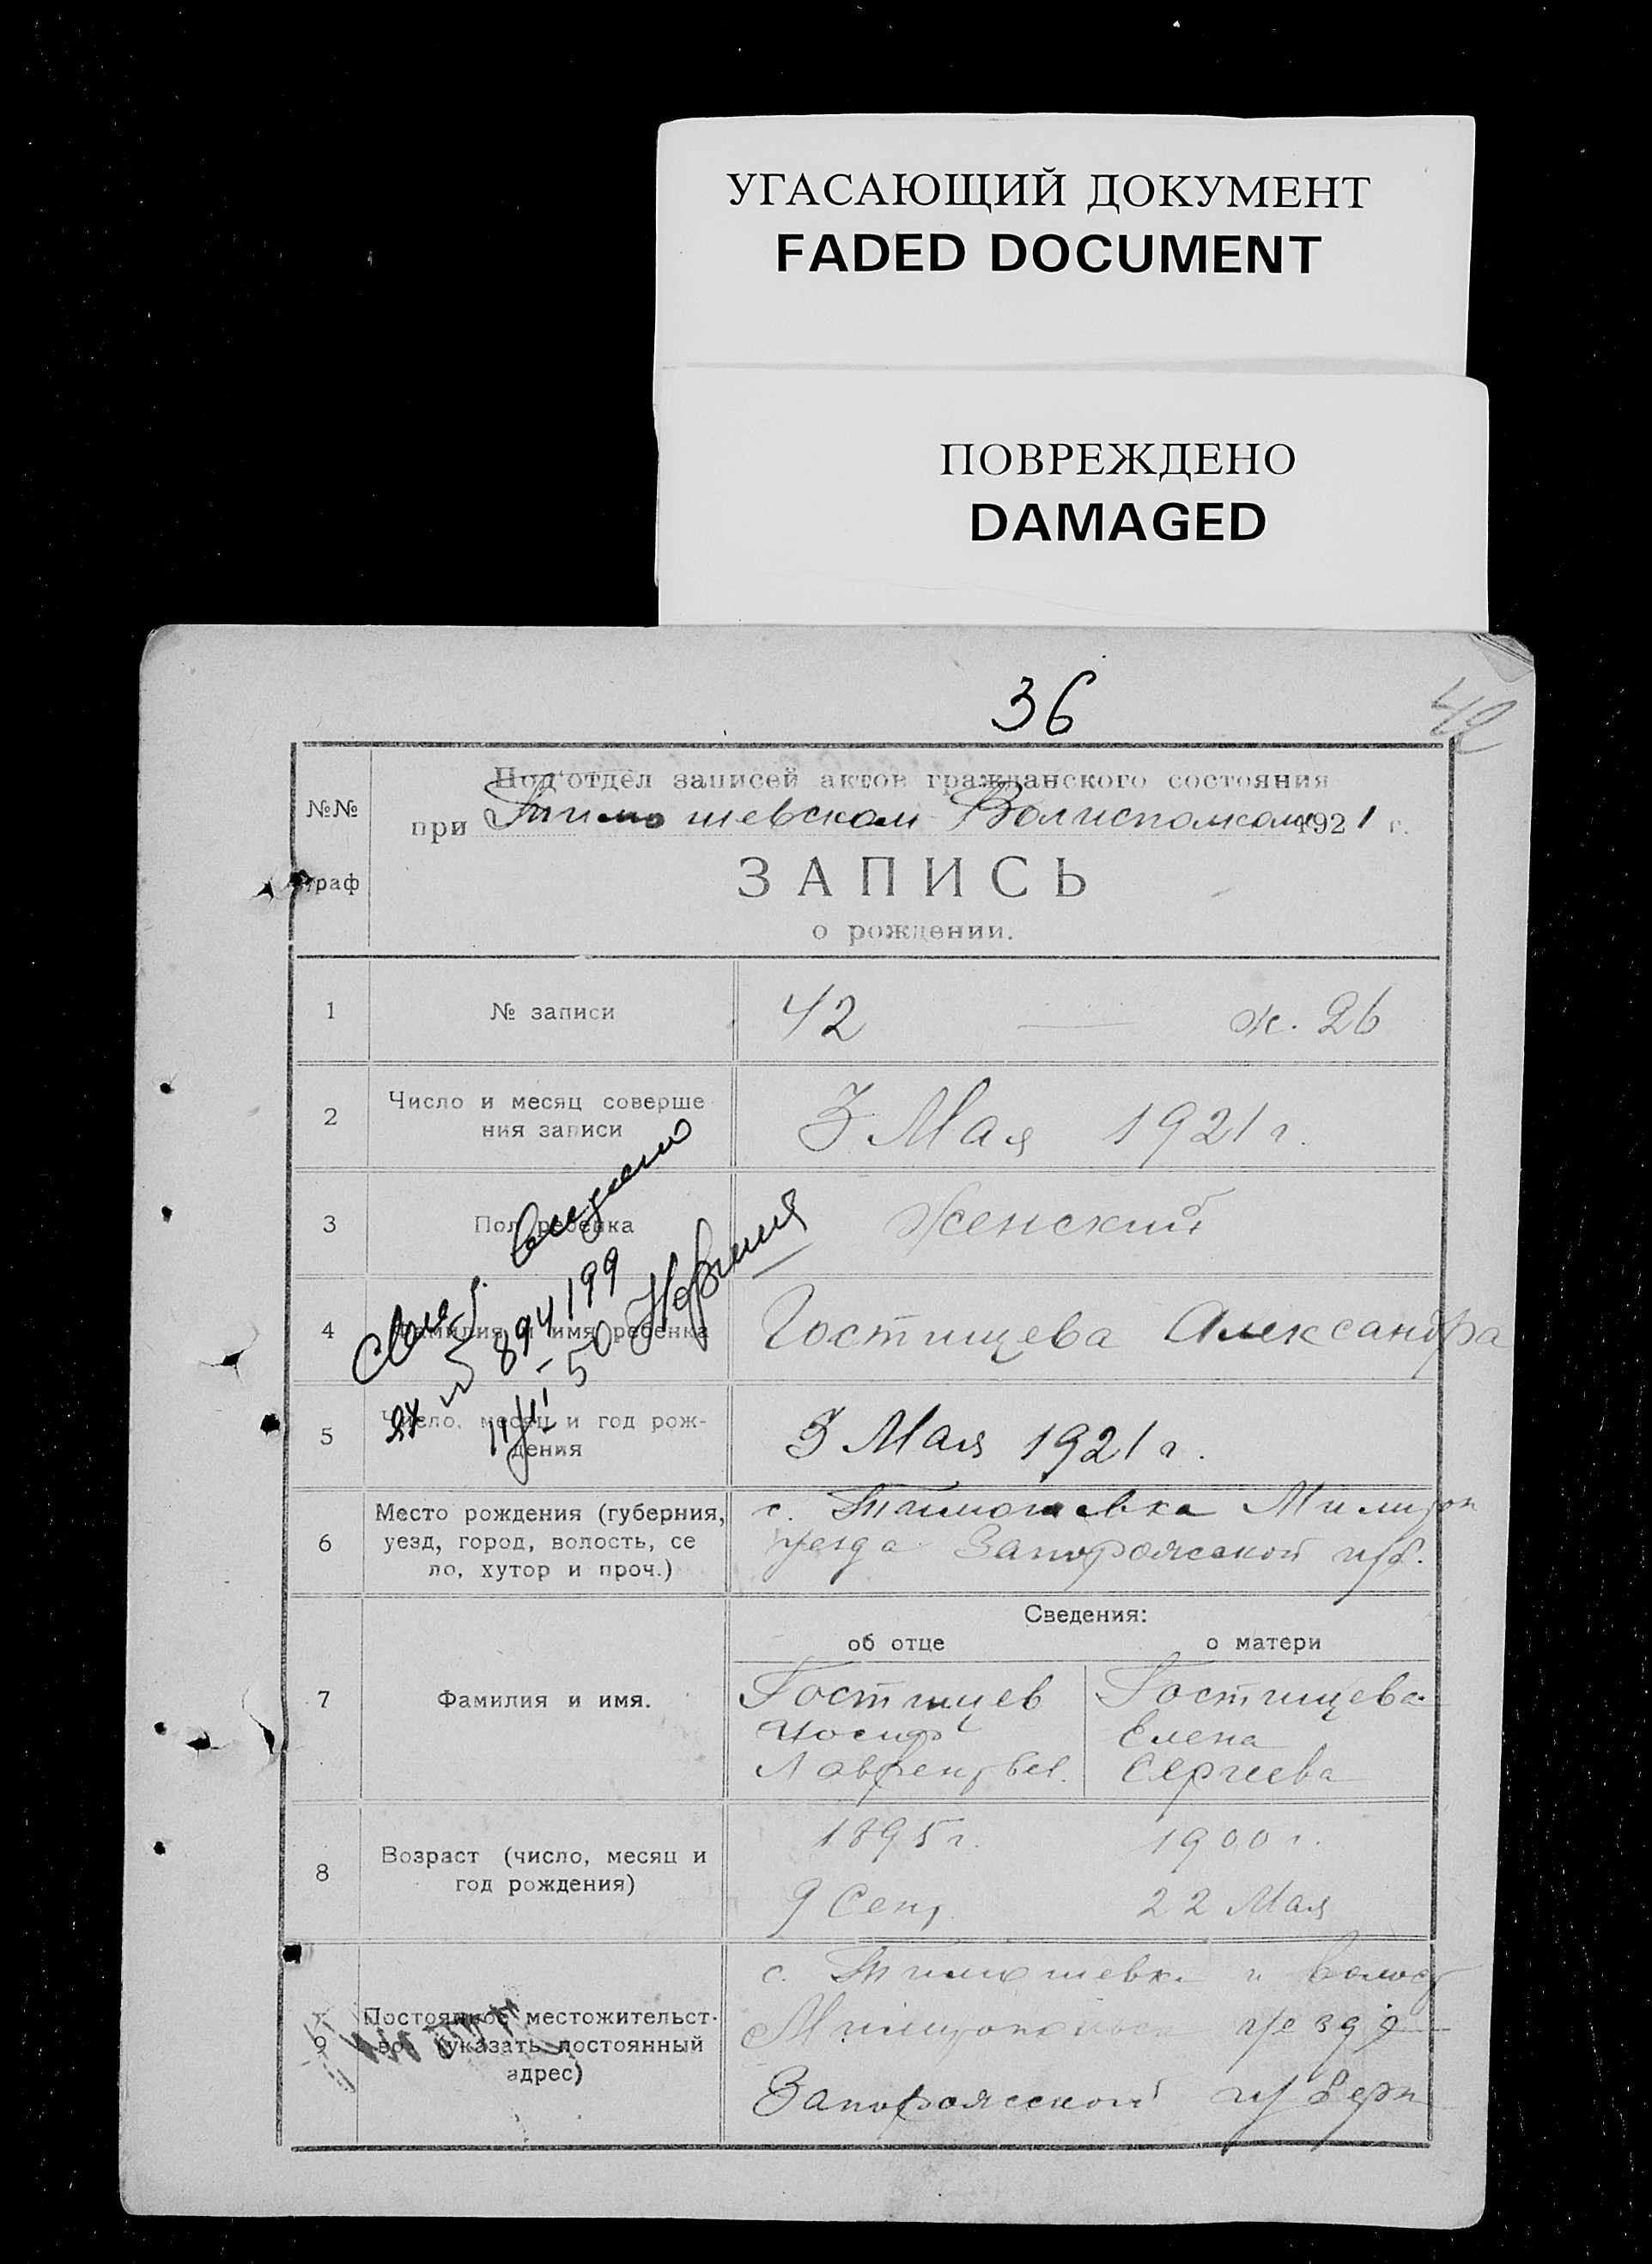 УГАСАЮЩИЙ ДОКУМЕНТ
FADED DOCUMENT
ПОВРЕЖДЕНО
DAMAGED
36
42
№№
граф
Под'отдел записей актов гражданского состояния
при Тимошевском Волисполкоме 1921 г.
ЗАПИСЬ
о рождении.
1 № записи 42 — ж. 26
2 Число и месяц соверше
ния записи
3 Мая 1921 г.
3 Пол ребенка Женский
4 Фамилия и имя ребенка Гостищева Александра
5 Число, месяц и год рож-
дения
3 Мая 1921 г.
6 Место рождения (губерния,
уезд, город, волость, се
ло, хутор и проч.)
с. Тимошевка Мелитоп
уезда Запорожской губ.
Сведения:
об отце о матери
7 Фамилия и имя.
Гостищев
Иосиф
Лаврентьев.
Гостищева
Елена
Сергеева
8 Возраст (число, месяц и
год рождения)
1895 г. 1900 г.
9 Сент. 22 Мая
9 Постоянное местожительст-
во (указать постоянный
адрес)
с. Тимошевка и волост
уезда
Запорожской губерн
894199